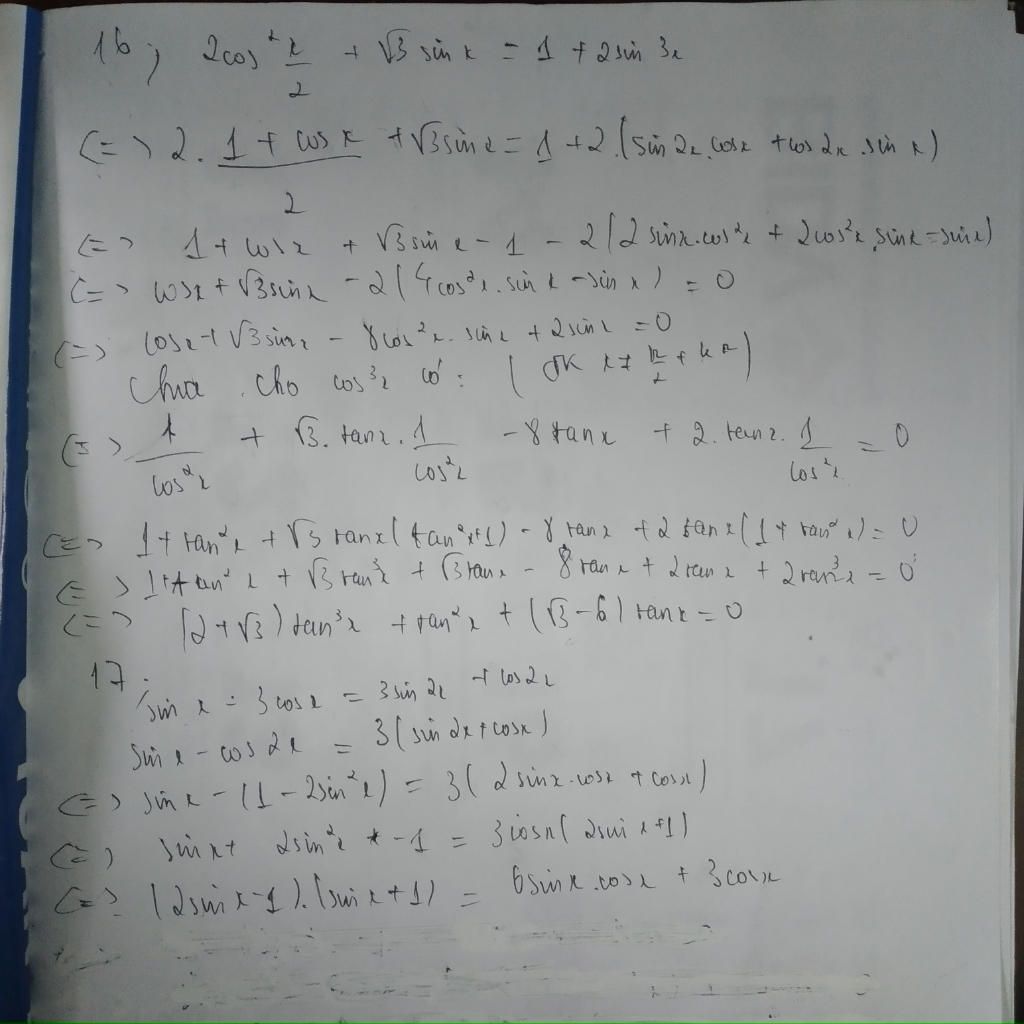 16; 2cos² x/2 + √3 sin x = 1 + 2sin 3x
<=> 2. (1 + cos x)/2 + √3 sin x = 1 + 2.(sin 2x.cos x + cos 2x.sin x)
<=> 1 + cos x + √3 sin x - 1 - 2(2 sin x.cos² x + 2cos² x.sin x - sin x)
<=> cos x + √3 sin x - 2(4cos² x.sin x - sin x) = 0
<=> cos x + √3 sin x - 8cos² x. sin x + 2sin x = 0
Chia cho cos³x có: (ĐK x ≠ π/2 + kπ)
<=> 1/cos² x + √3. tan x. 1/cos² x - 8 tan x + 2. tan x. 1/cos² x = 0
<=> 1 + tan² x + √3 tan x(tan² x+1) - 8 tan x + 2 tan x(1 + tan² x) = 0
<=> 1 + tan² x + √3 tan³ x + √3 tan x - 8 tan x + 2 tan x + 2 tan³ x = 0
<=> (2 + √3) tan³ x + tan² x + (√3 - 6) tan x = 0
17. sin x - 3 cos x = 3 sin 2x + cos 2x
sin x - cos 2x = 3(sin 2x + cos x)
<=> sin x - (1 - 2sin² x) = 3( 2 sin x.cos x + cos x)
<=> sin x + 2sin² x - 1 = 3cos x( 2sin x +1)
<=> (2sin x - 1).(sin x + 1) = 6 sin x.cos x + 3 cos x